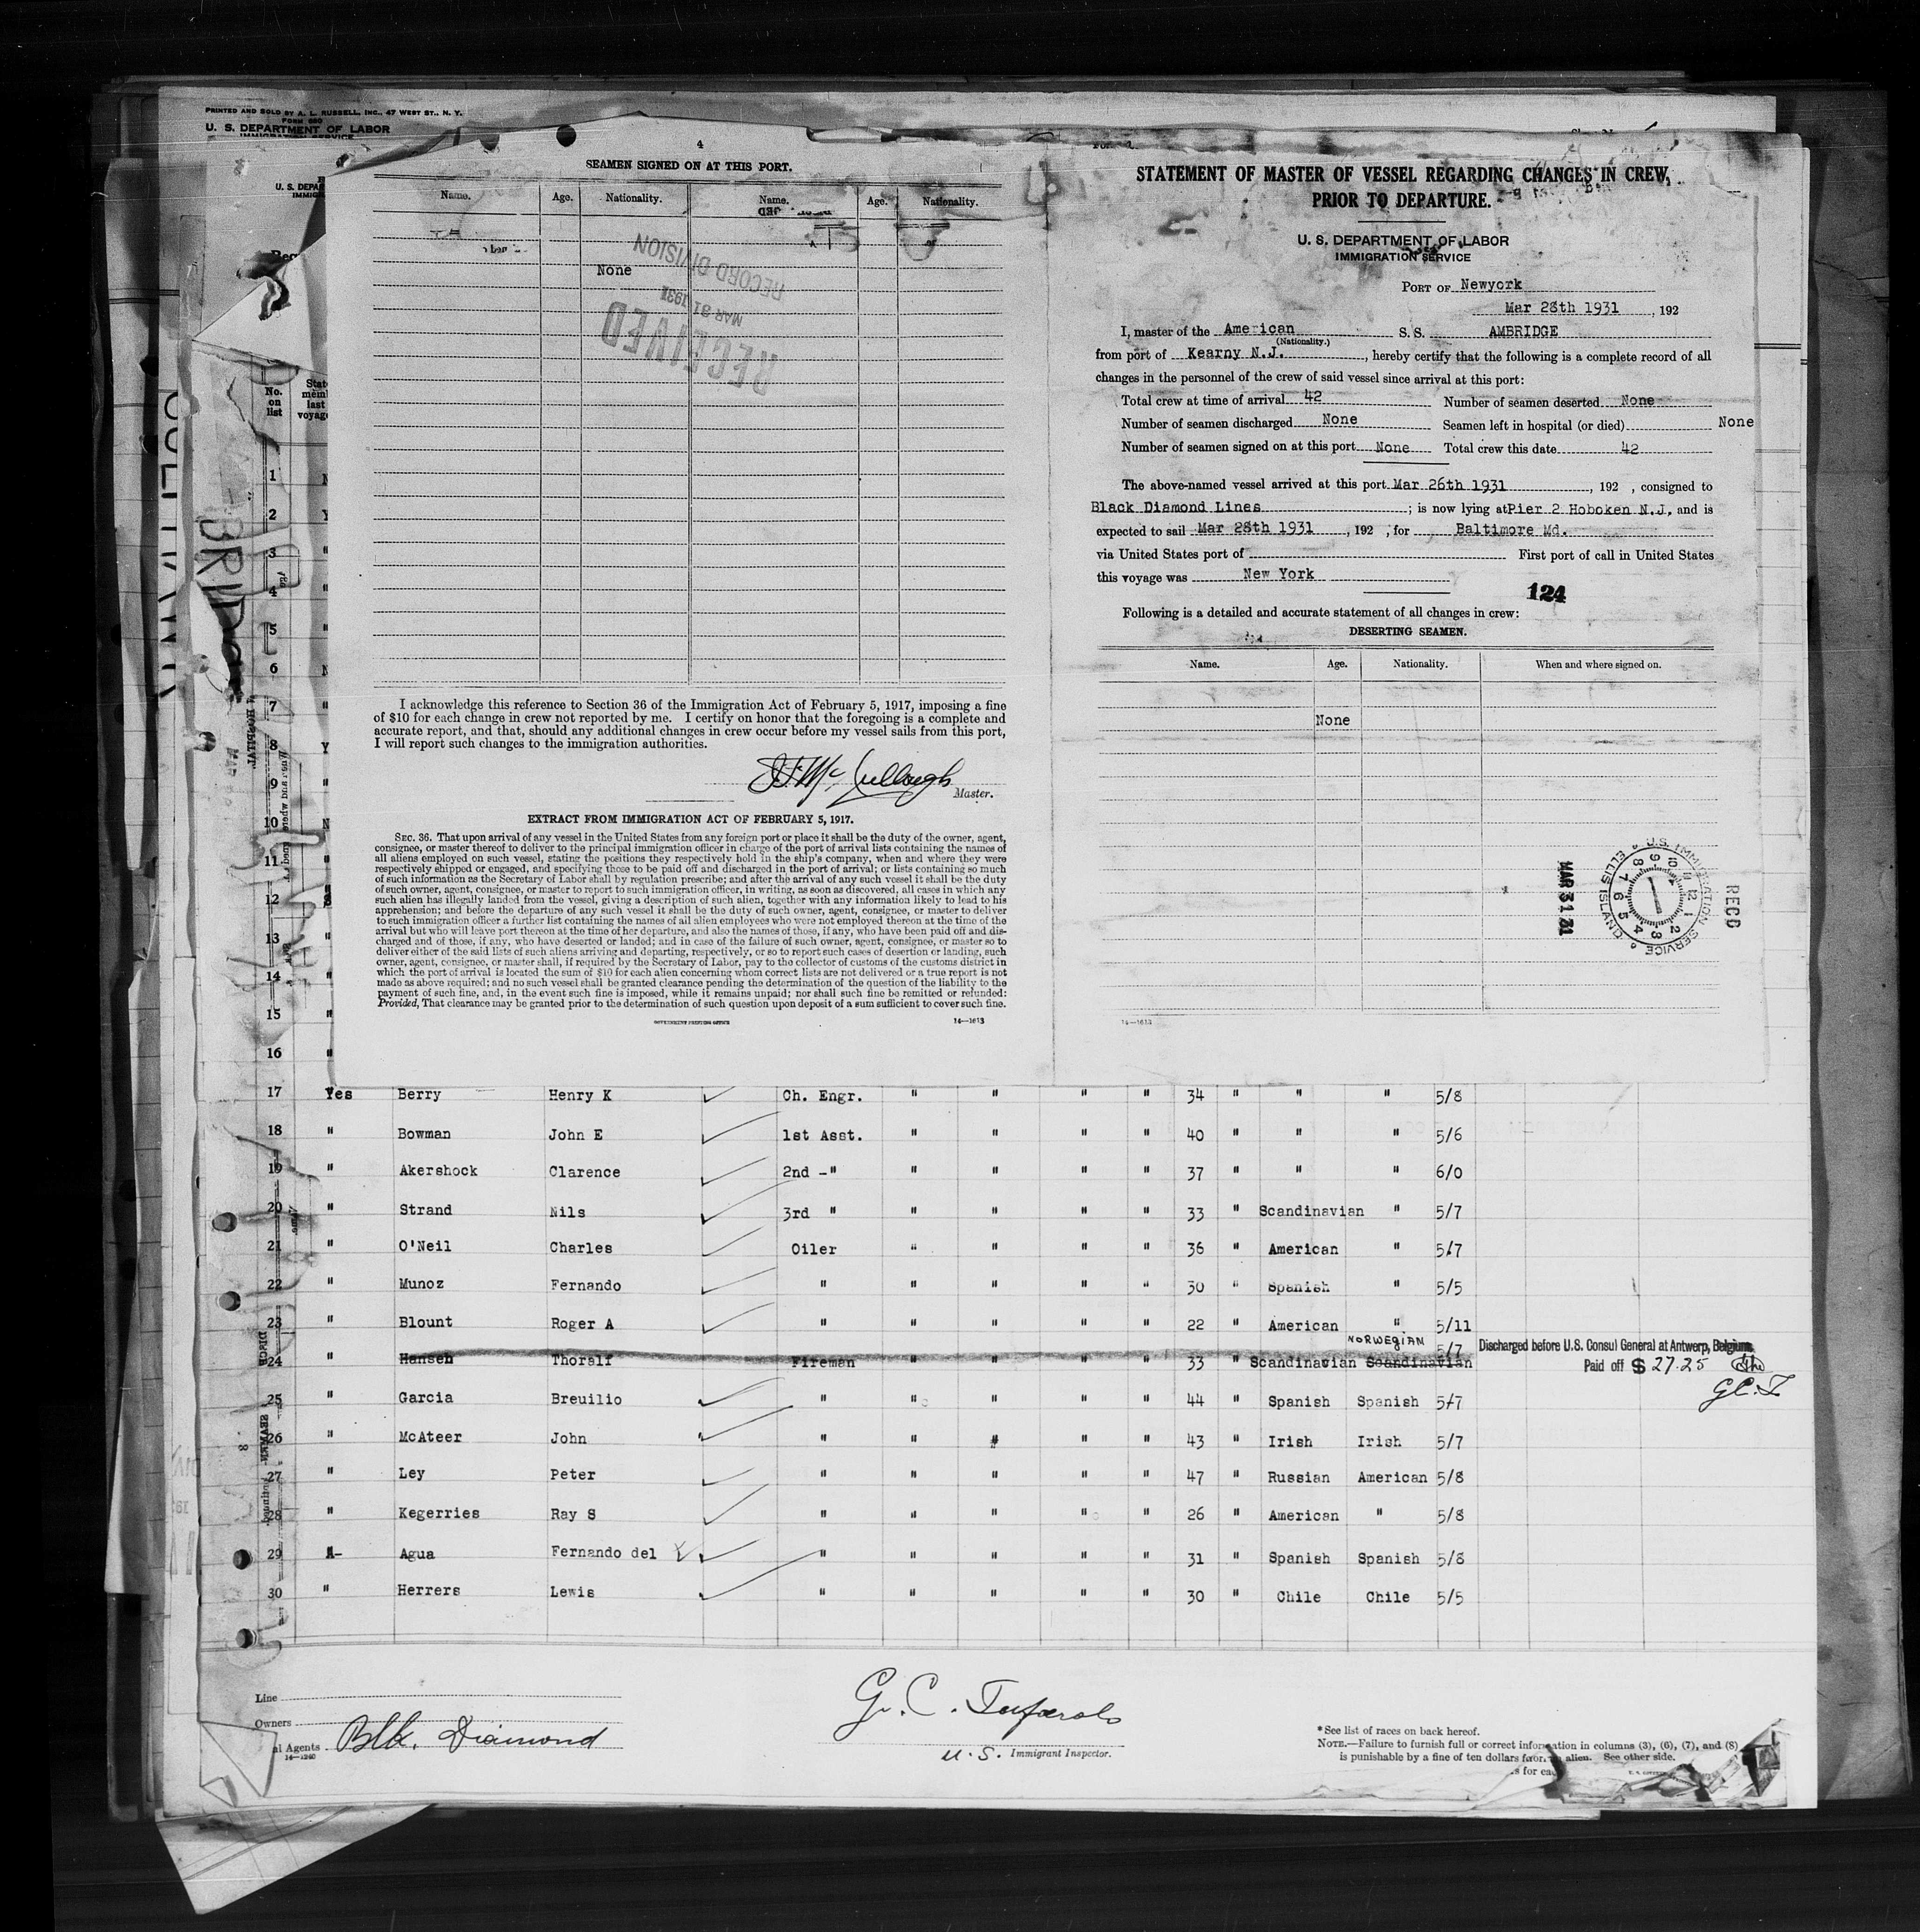 PRINTED AND SOLD BY A. L. RUSSELL, INC., 47 WEST ST., N. Y.
FORM 680
U. S. DEPARTMENT OF LABOR
IMMIGRATION SERVICE
4
SEAMEN SIGNED ON AT THIS PORT.
Name. Age. Nationality. Name. Age. Nationality.
None
RECORD DIVISION
MAR 31 1931
RECEIVED
I acknowledge this reference to Section 36 of the Immigration Act of February 5, 1917, imposing a fine
of $10 for each change in crew not reported by me. I certify on honor that the foregoing is a complete and
accurate report, and that, should any additional changes in crew occur before my vessel sails from this port,
I will report such changes to the immigration authorities.
McCullough
Master.
EXTRACT FROM IMMIGRATION ACT OF FEBRUARY 5, 1917.
SEC. 36. That upon arrival of any vessel in the United States from any foreign port or place it shall be the duty of the owner, agent,
consignee, or master thereof to deliver to the principal immigration officer in charge of the port of arrival lists containing the names of
all aliens employed on such vessel, stating the positions they respectively hold in the ship's company, when and where they were
respectively shipped or engaged, and specifying those to be paid off and discharged in the port of arrival; or lists containing so much
of such information as the Secretary of Labor shall by regulation prescribe; and after the arrival of any such vessel it shall be the duty
of such owner, agent, consignee, or master to report to such immigration officer, in writing, as soon as discovered, all cases in which any
such alien has illegally landed from the vessel, giving a description of such alien, together with any information likely to lead to his
apprehension; and before the departure of any such vessel it shall be the duty of such owner, agent, consignee, or master to deliver
to such immigration officer a further list containing the names of all alien employees who were not employed thereon at the time of the
arrival but who will leave port thereon at the time of her departure, and also the names of those, if any, who have been paid off and dis-
charged and of those, if any, who have deserted or landed; and in case of the failure of such owner, agent, consignee, or master so to
deliver either of the said lists of such aliens arriving and departing, respectively, or so to report such cases of desertion or landing, such
owner, agent, consignee, or master shall, if required by the Secretary of Labor, pay to the collector of customs of the customs district in
which the port of arrival is located the sum of $10 for each alien concerning whom correct lists are not delivered or a true report is not
made as above required; and no such vessel shall be granted clearance pending the determination of the question of the liability to the
payment of such fine, and, in the event such fine is imposed, while it remains unpaid; nor shall such fine be remitted or refunded:
Provided, That clearance may be granted prior to the determination of such question upon deposit of a sum sufficient to cover such fine.
GOVERNMENT PRINTING OFFICE 14—1613
STATEMENT OF MASTER OF VESSEL REGARDING CHANGES IN CREW,
PRIOR TO DEPARTURE.
U. S. DEPARTMENT OF LABOR
IMMIGRATION SERVICE
PORT OF Newyork
Mar 28th 1931, 192
I, master of the American S. S. AMBRIDGE
(Nationality.)
from port of Kearny N.J., hereby certify that the following is a complete record of all
changes in the personnel of the crew of said vessel since arrival at this port:
Total crew at time of arrival 42 Number of seamen deserted None
Number of seamen discharged None Seamen left in hospital (or died) None
Number of seamen signed on at this port None Total crew this date 42
The above-named vessel arrived at this port Mar 26th 1931, 192 , consigned to
Black Diamond Lines; is now lying at Pier 2 Hoboken N.J, and is
expected to sail Mar 28th 1931, 192 , for Baltimore Md.
via United States port of First port of call in United States
this voyage was New York
124
Following is a detailed and accurate statement of all changes in crew:
DESERTING SEAMEN.
Name. Age. Nationality. When and where signed on.
None
REC'D
U.S. IMMIGRATION SERVICE ELLIS ISLAND
MAR 31 31
14—1613
No. on list
1
2
3
4
5
6
7
8
9
10
11
12
13
14
15
16
17 Yes Berry Henry K Ch. Engr. " " " " 34 " " " 5/8
18 " Bowman John E 1st Asst. " " " " 40 " " " 5/6
19 " Akershock Clarence 2nd -" " " " " 37 " " " 6/0
20 " Strand Nils 3rd " " " " " 33 " Scandinavian " 5/7
21 " O'Neil Charles Oiler " " " " 36 " American " 5/7
22 " Munoz Fernando " " " " " 30 " Spanish " 5/5
23 " Blount Roger A " " " " " 22 " American " 5/11
NORWEGIAN
24 " Hansen Thoralf Fireman " " " " 33 " Scandinavian Scandinavian 5/7 Discharged before U.S. Consul General at Antwerp, Belgium.
Paid off $ 27.25
25 " Garcia Breuilio " " " " " 44 " Spanish Spanish 5/7
26 " McAteer John " " " " " 43 " Irish Irish 5/7
27 " Ley Peter " " " " " 47 " Russian American 5/8
28 " Kegerries Ray S " " " " " 26 " American " 5/8
29 A- Agua Fernando del " " " " " 31 " Spanish Spanish 5/8
30 " Herrers Lewis " " " " " 30 " Chile Chile 5/5
Line
Owners
al Agents Blk. Diamond
14—1240
G. C.
U. S. Immigrant Inspector.
*See list of races on back hereof.
NOTE.—Failure to furnish full or correct information in columns (3), (6), (7), and (8)
is punishable by a fine of ten dollars for alien. See other side.